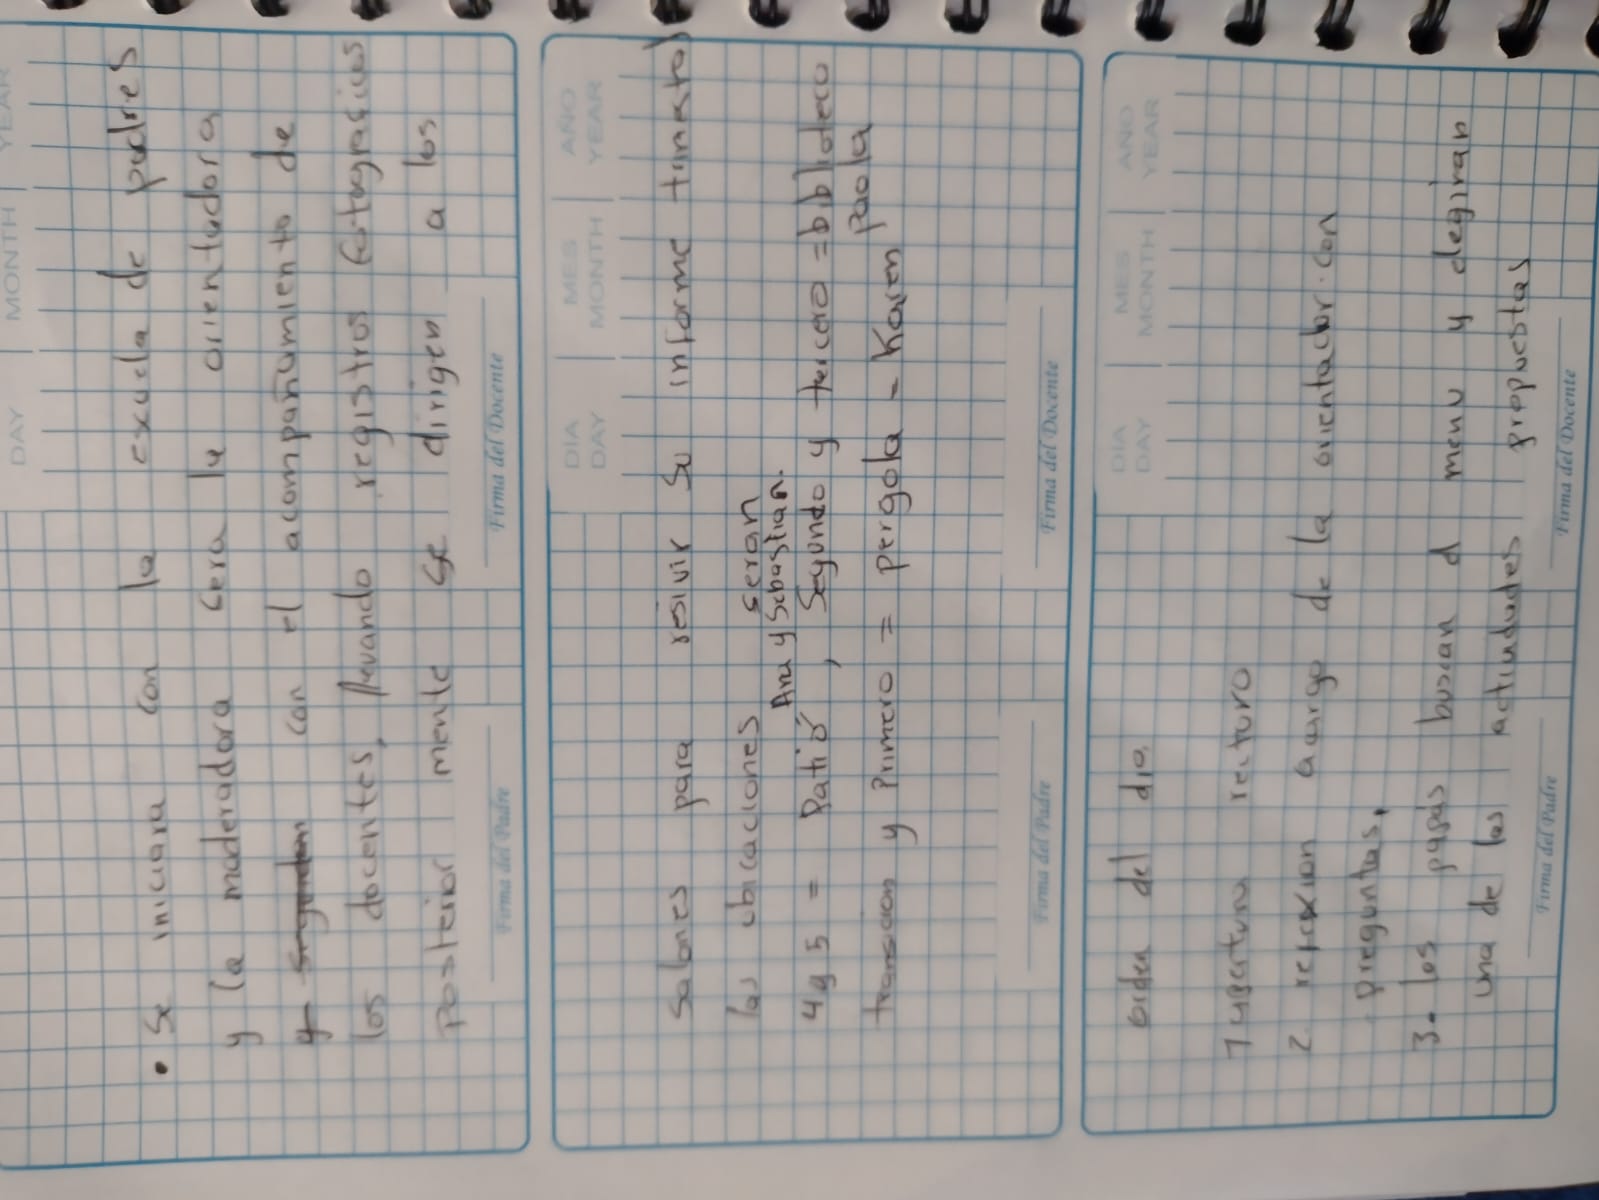 DAY MONTH YEAR
• Se iniciara con la exuela de padres
y la maderadora sera la orientadora
y con el acompañamiento de
los docentes, llevando registros fotograficos
Posterior mente se dirigen a los
Firma del Padre Firma del Docente
DIA DAY MES MONTH AÑO YEAR
Salones para resivir su informe
las ubicaciones seran
Ana y Sebastian.
4 y 5 = Patio, Segundo y tercero = biblioteco
Paola
transicion y Primero = pergola = Karen
Firma del Padre Firma del Docente
DIA DAY MES MONTH AÑO YEAR
orden del dia
1 apertura rectoro
2 reflexion a cargo de la orientador.con
preguntas,
3. los papás buscan el menu y elegiran
una de las actividades propuestas
Firma del Padre Firma del Docente